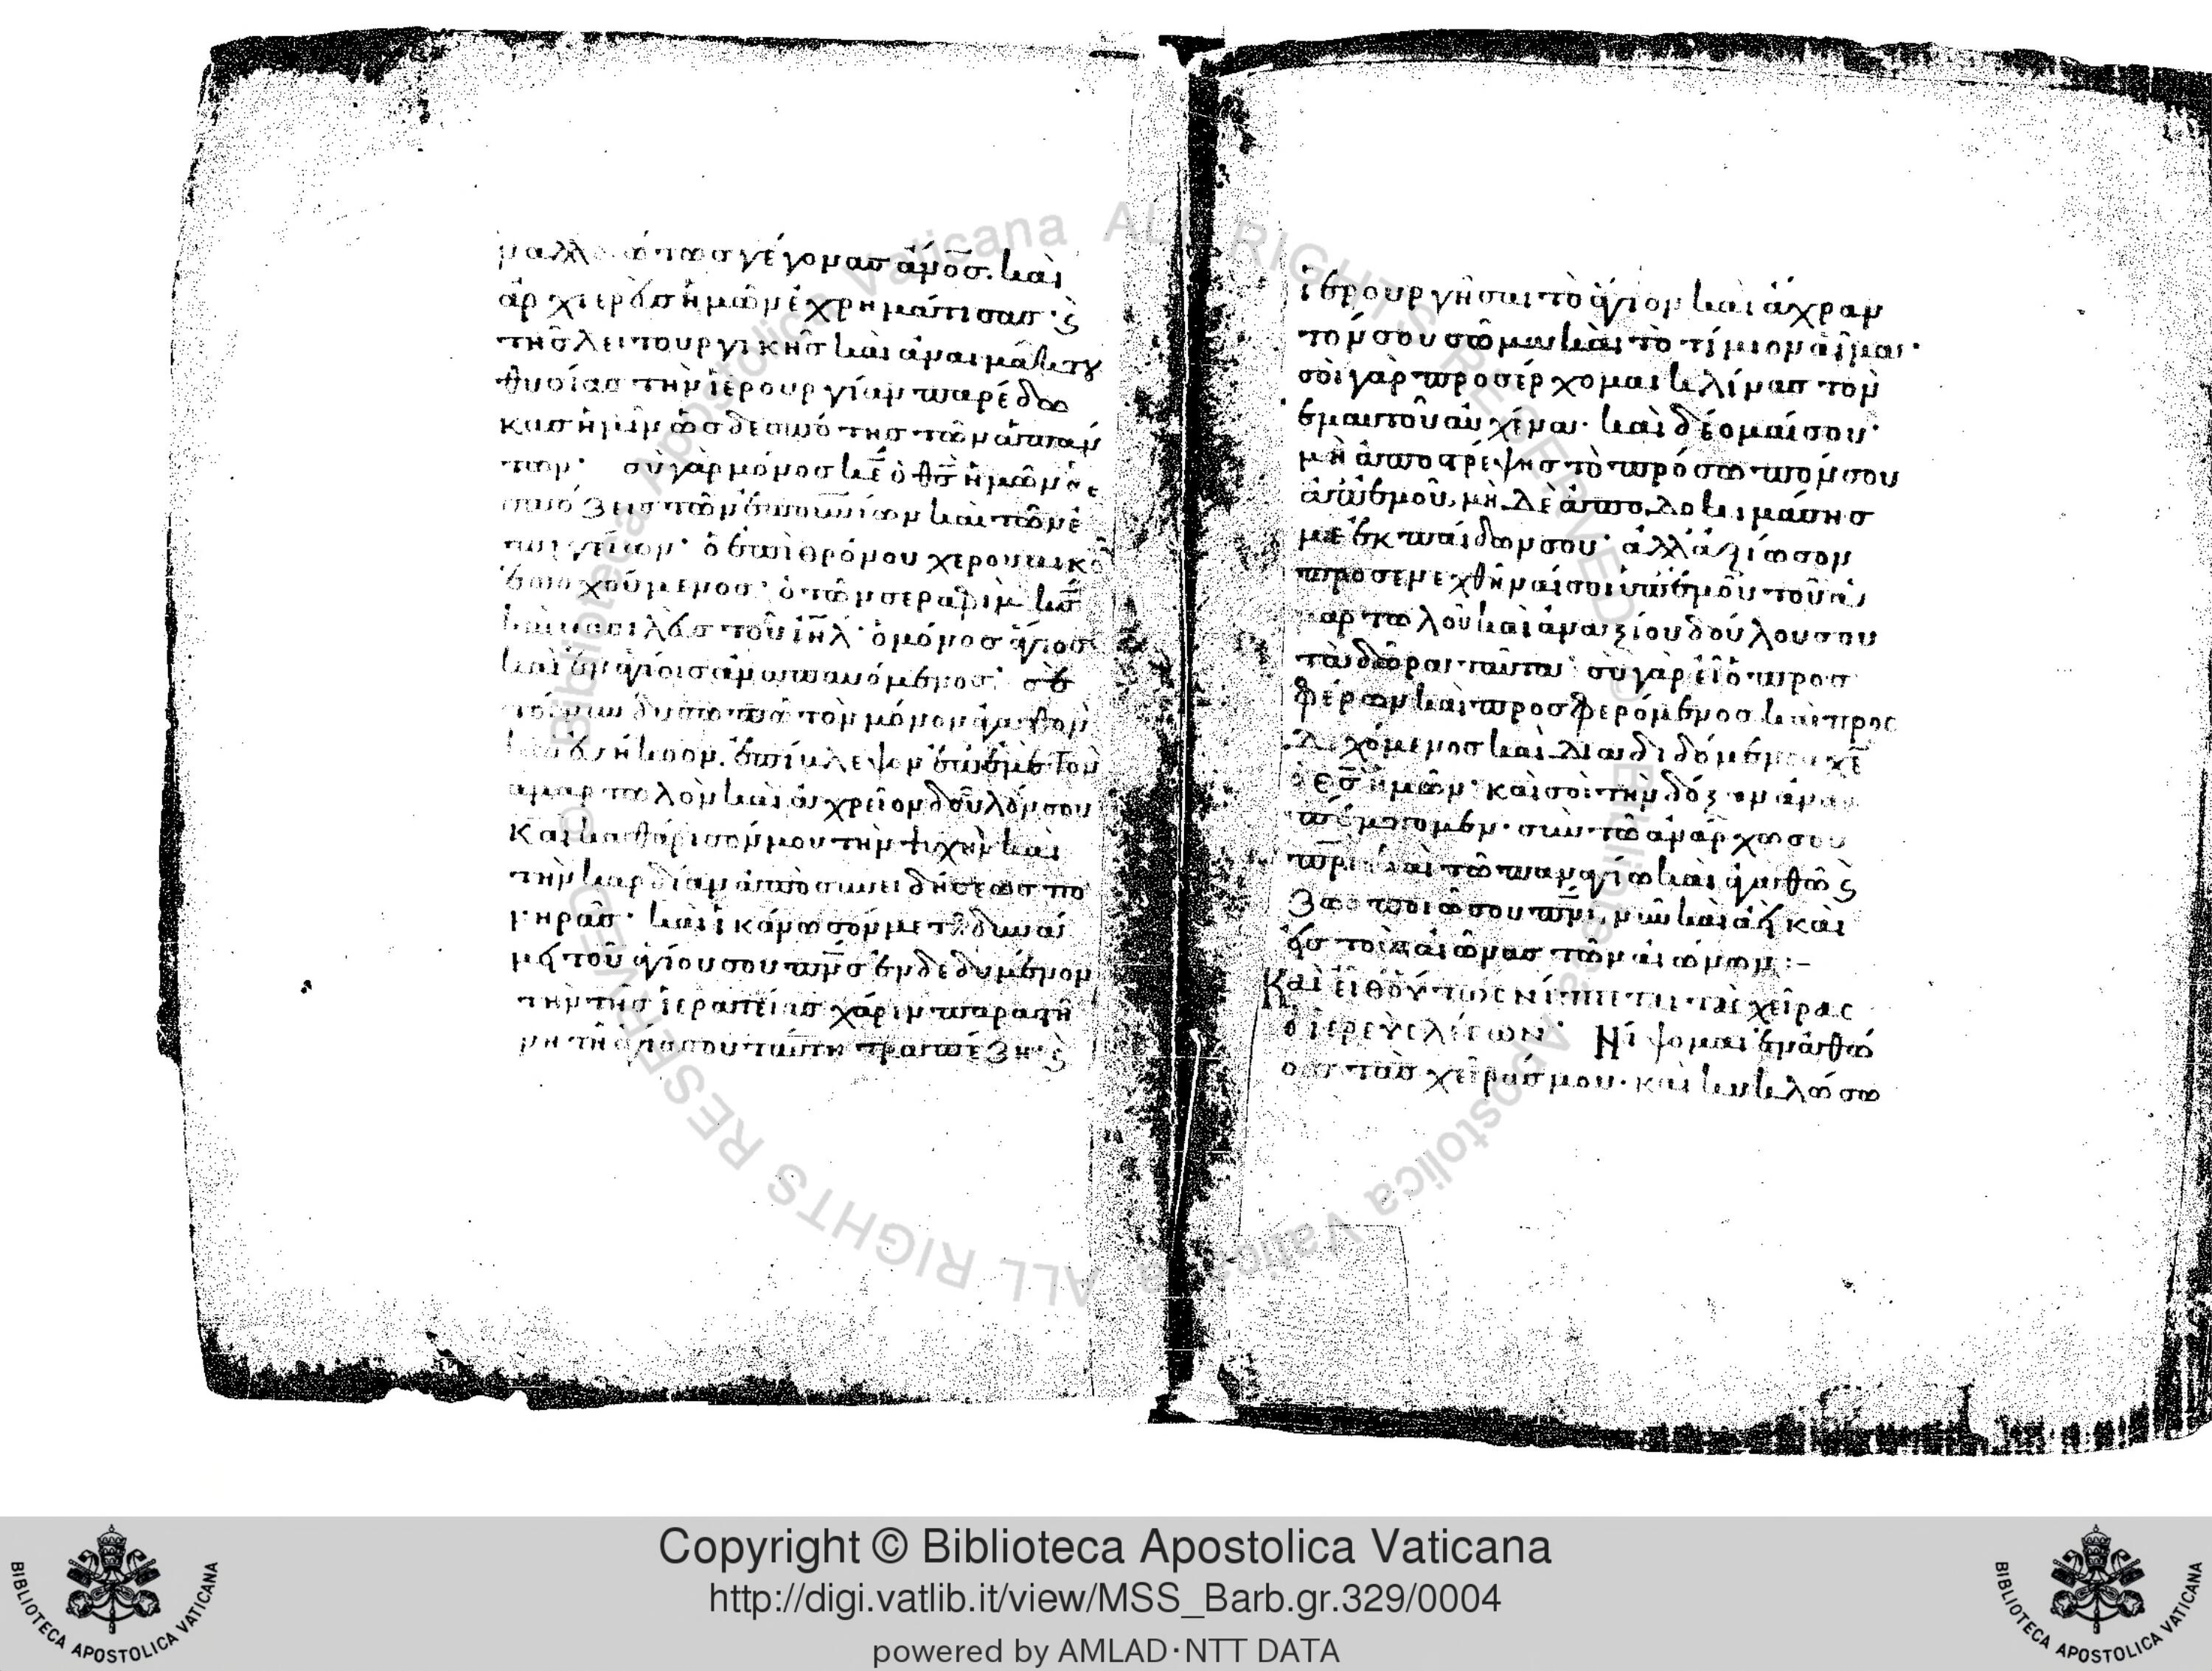 μαλλοιώτως γέγονας ἄνος. καὶ
ἀρχιερεὺς ἡμῶν ἐχρημάτισας· ϛ
τῆς λειτουργικῆς καὶ ἀναιμάκτου
θυσίας τὴν ἱερουργίαν παρέδω
κας ἡμῖν ὡς δεσπότης τῶν ἁπάν
των· σὺ γὰρ μόνος κε ὁ θς ἡμῶν δε
σπόζεις τῶν ἐπουνίων καὶ τῶν ἐ
πιγείων· ὁ ἐπὶ θρόνου χερουβικοῦ
ἐποχούμενος· ὁ τῶν σεραφὶμ κς
καὶ βασιλεὺς τοῦ ιηλ· ὁ μόνος ἅγιος
καὶ ἐν ἁγίοις ἀναπαυόμενος· σὲ
τοίνυν δυσωπῶ τὸν μόνον ἀγαθὸν
καὶ εὐήκοον. ἐπίβλεψον ἐπ' ἐμὲ τὸν
ἁμαρτωλὸν καὶ ἀχρεῖον δοῦλόν σου
Καὶ καθάρισόν μου τὴν ψυχὴν καὶ
τὴν καρδίαν ἀπὸ συνειδήσεως πο
νηρᾶς· καὶ ἱκάνωσόν με τῇ δυνάμει
τοῦ ἁγίου σου πνς ἐνδεδυμένον
τὴν τῆς ἱερατείας χάριν παραστῆ
ναι τῇ ἁγίᾳ σου ταύτῃ τραπέζῃ· ϛ
ἱερουργῆσαι τὸ ἅγιον καὶ ἄχραν
τόν σου σῶμα καὶ τὸ τίμιον αἷμα·
σοὶ γὰρ προσέρχομαι κλίνας τὸν
ἐμαυτοῦ αὐχένα· καὶ δέομαί σου·
μὴ ἀποστρέψῃς τὸ πρόσωπόν σου
ἀπ' ἐμοῦ, μὴ δὲ ἀποδοκιμάσῃς
με ἐκ παίδων σου· ἀλλ' ἀξίωσον
προσενεχθῆναί σοι ὑπ' ἐμοῦ τοῦ ἁ
μαρτωλοῦ καὶ ἀναξίου δούλου σου
τὰ δῶρα ταῦτα· σὺ γὰρ εἶ ὁ προσ
φέρων καὶ προσφερόμενος καὶ προς
δεχόμενος καὶ διαδιδόμενος χε
ὁ θς ἡμῶν· καὶ σοὶ τὴν δόξαν ἀνα
πέμπομεν. σὺν τῶ ἀνάρχω σου
πρι καὶ τῶ παναγίω καὶ ἀγαθῶ ϛ
ζωοποιῶ σου πνι, νῦν καὶ ἀεὶ καὶ
εἰς τοὺς αἰῶνας τῶν αἰώνων:-
Καὶ εἶθ' οὕτως νίπτεται τὰς χεῖρας
ὁ ἱερεὺς λέγων· Νίψομαι ἐν ἀθώ
οις τὰς χεῖράς μου· καὶ κυκλώσω